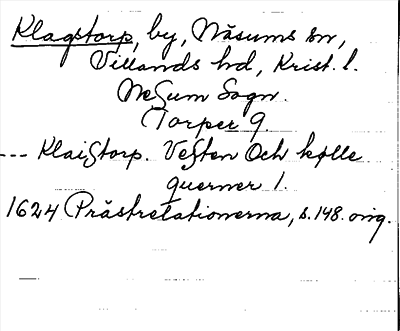 Klagstorp, by, Näsums sn,
Villands hd, Krist. l.
Nesum Sogn.
Torper 9.
--- Klaistorp. Vesten Och kølle
querner 1.
1624 Prästrelationerna, s. 148. orig.